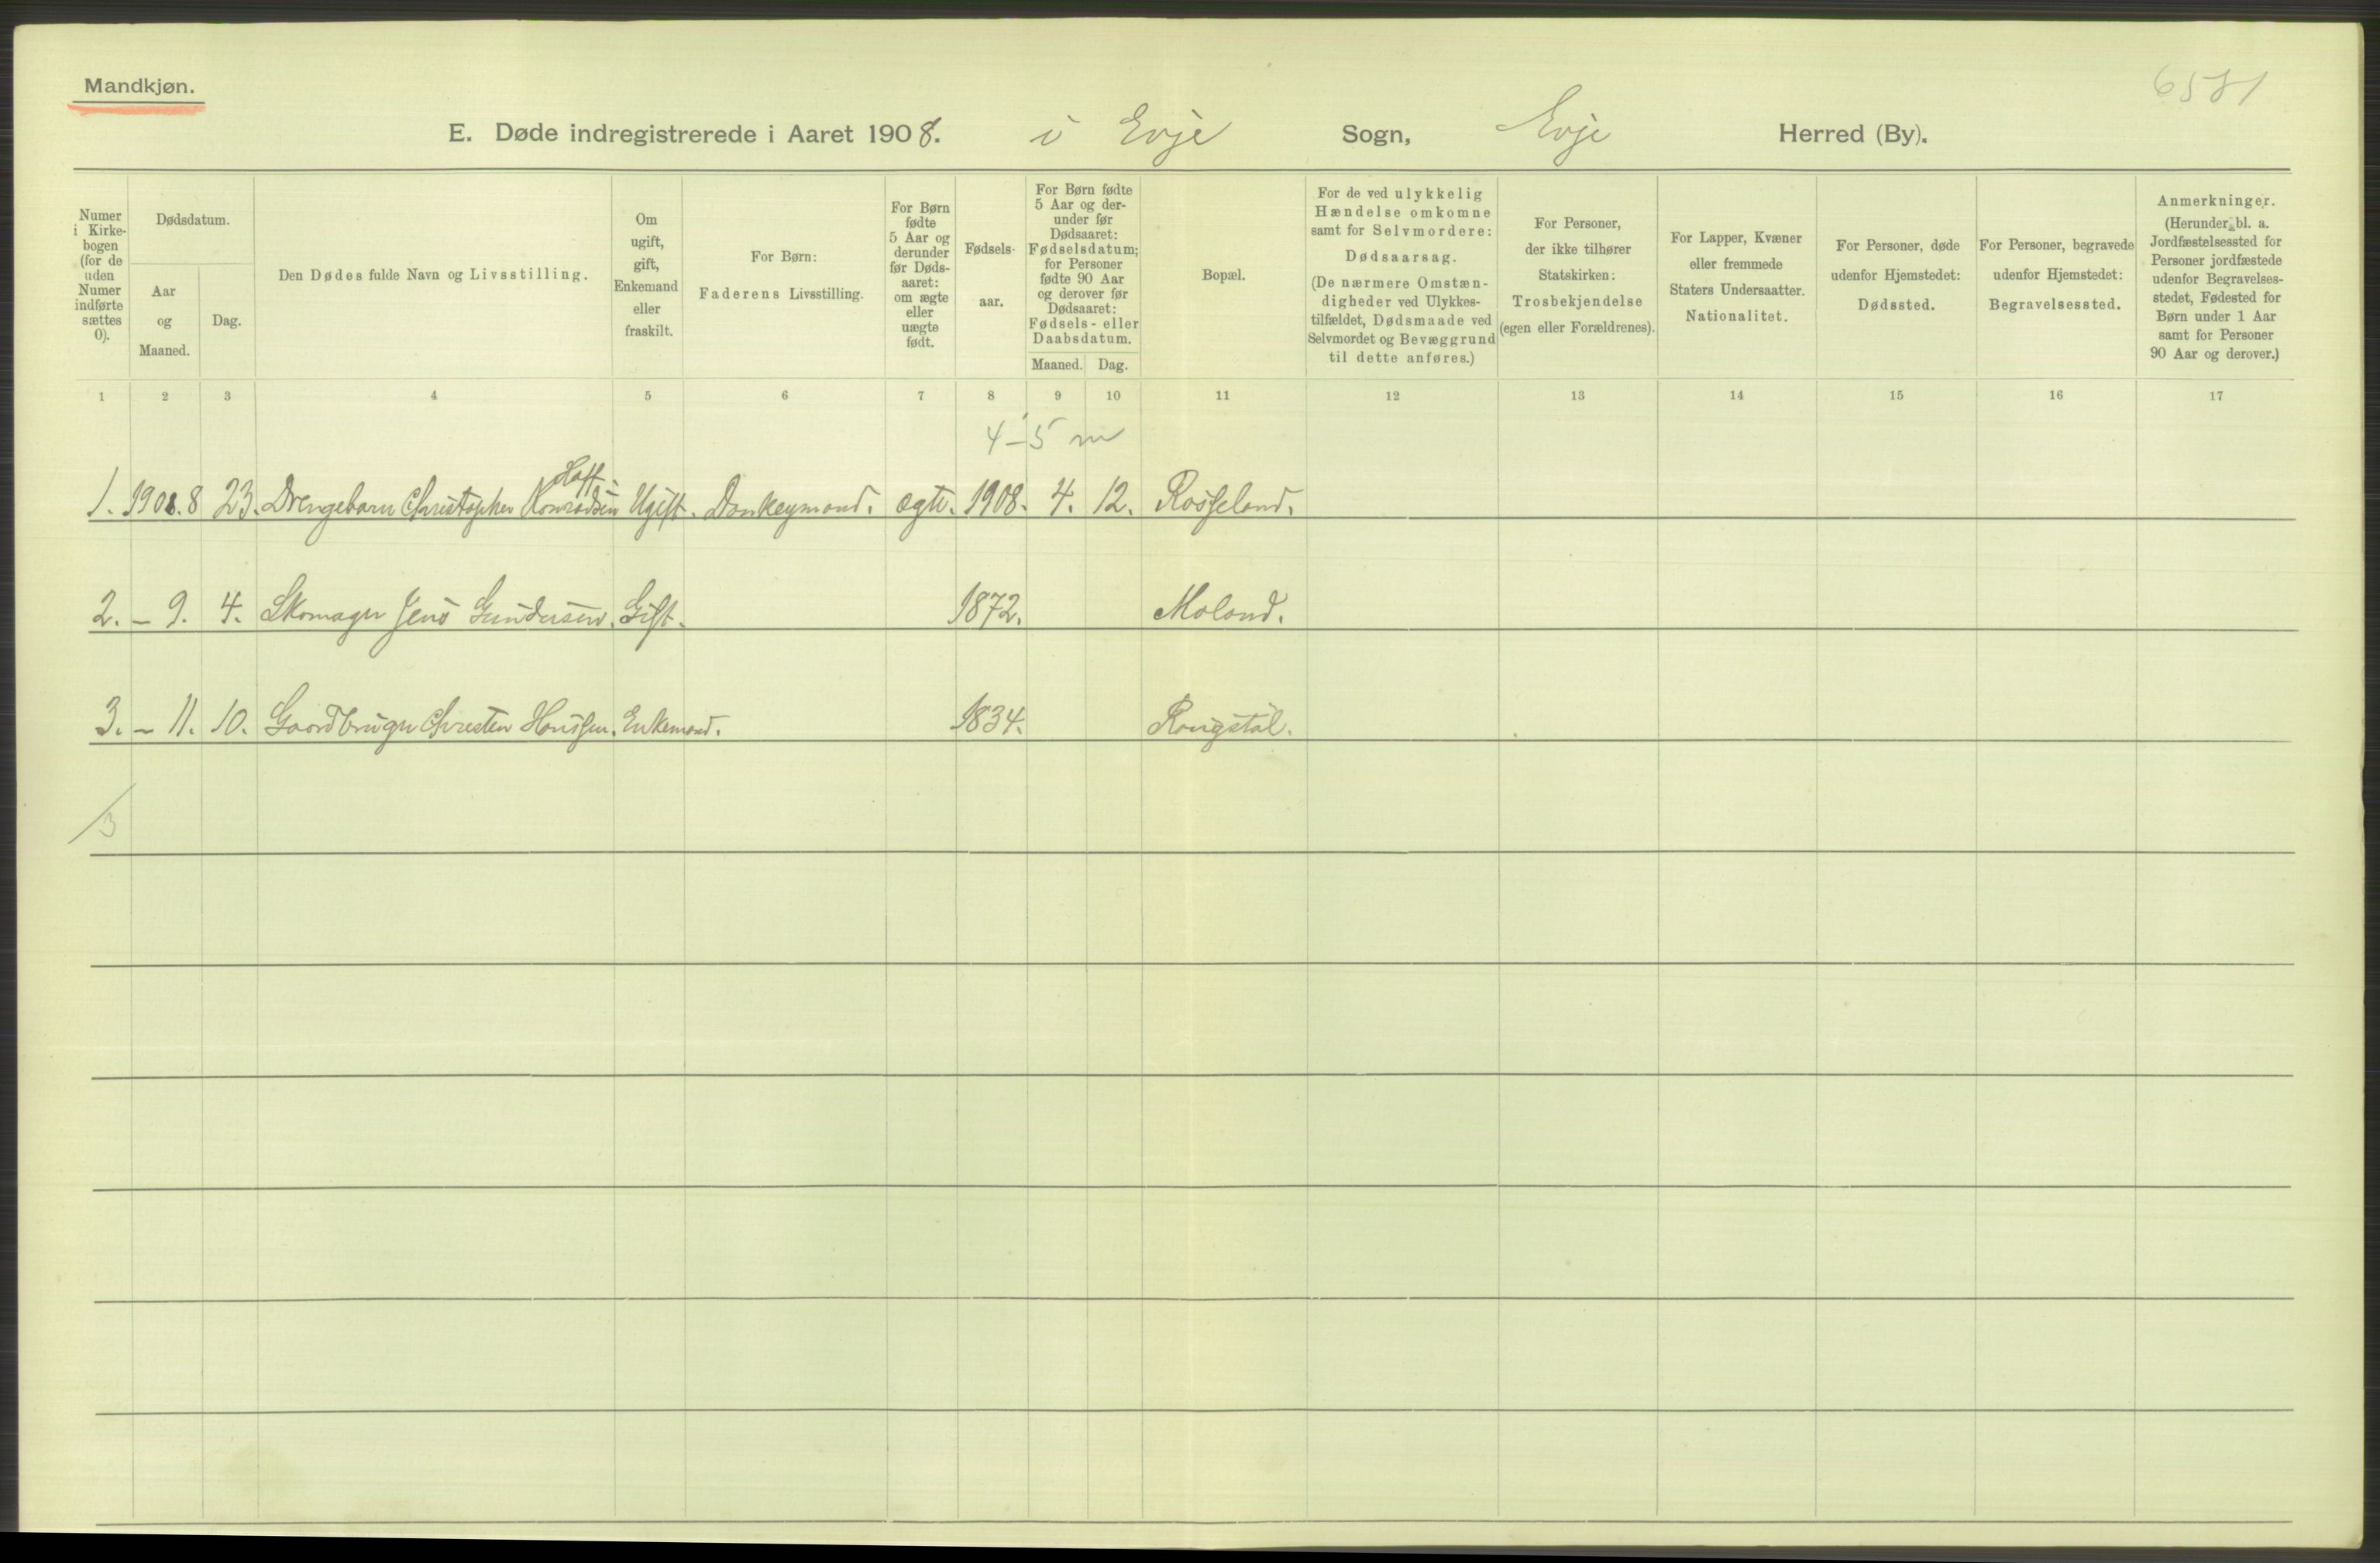 Mandkjøn.
6581
E. Døde indregistrerede i Aaret 1908. i Evje Sogn, Evje Herred (By).
Numer i Kirke-bogen (for de uden Numer indførte sættes 0).
Dødsdatum.
Aar og Maaned.
Dag.
Den Dødes fulde Navn og Livsstilling.
Om ugift, gift, Enkemand eller fraskilt.
For Børn: Faderens Livsstilling.
For Børn fødte 5 Aar og derunder før Døds-aaret: om ægte eller uægte født.
Fødsels-aar.
For Børn fødte 5 Aar og der-under før Dødsaaret: Fødselsdatum; for Personer fødte 90 Aar og derover før Dødsaaret: Fødsels- eller Daabsdatum.
Maaned. Dag.
Bopæl.
For de ved ulykkelig Hændelse omkomne samt for Selvmordere: Dødsaarsag. (De nærmere Omstæn-digheder ved Ulykkes-tilfældet, Dødsmaade ved Selvmordet og Bevæggrund til dette anføres.)
For Personer, der ikke tilhører Statskirken: Trosbekjendelse (egen eller Forældrenes).
For Lapper, Kvæner eller fremmede Staters Undersaatter. Nationalitet.
For Personer, døde udenfor Hjemstedet: Dødssted.
For Personer, begravede udenfor Hjemstedet: Begravelsessted.
Anmerkninger. (Herunder bl. a. Jordfæstelsessted for Personer jordfæstede udenfor Begravelses-stedet, Fødested for Børn under 1 Aar samt for Personer 90 Aar og derover.)
1 2 3 4 5 6 7 8 9 10 11 12 13 14 15 16 17
4-5 m
1. 1908. 8 23. Drengebarn Christopher Konradsen Ugift. Donkeymand. ægte. 1908. 4. 12. Rosseland.
2. - 9. 4. Skomager Jens Gundersen. Gift. 1872. Moland.
3. - 11. 10. Gaardbruger Christen Hanssen. Enkemand. 1834.
/3